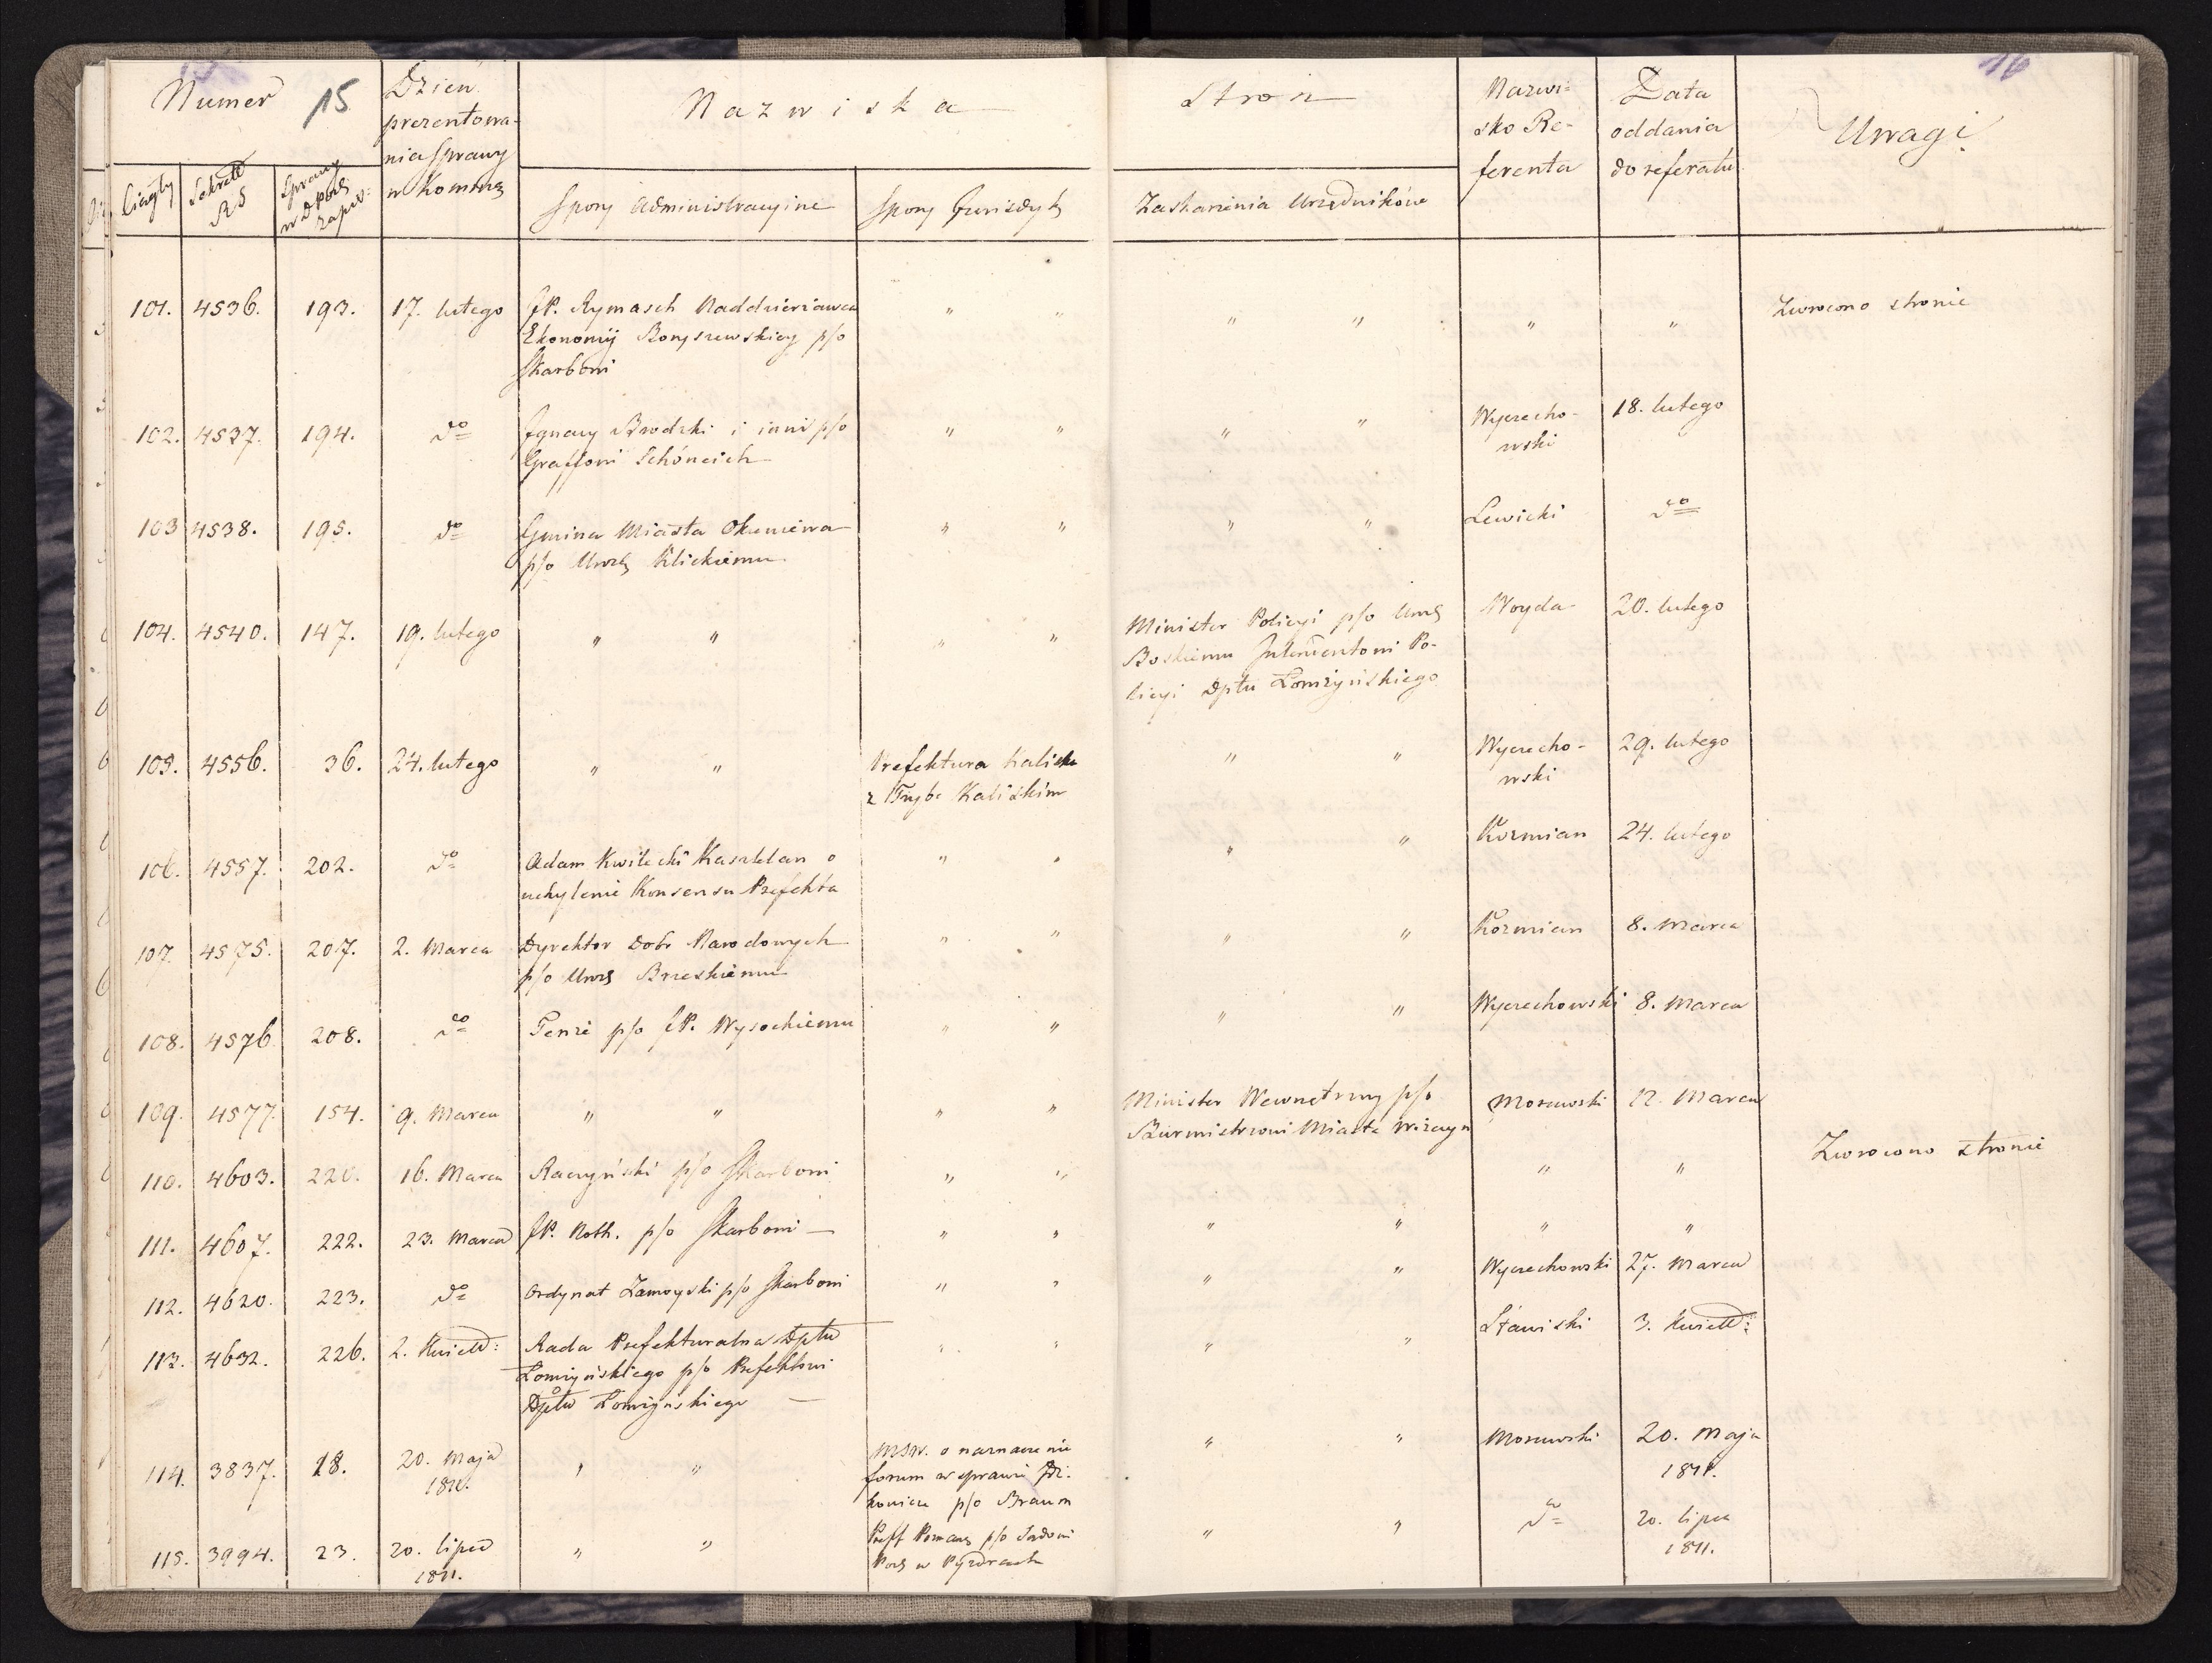 Numer 15
Dzień
prezentowa-
nia Sprawy
w Kommis
Nazwiska
Stron
Nazwi-
sko Re-
ferenta
Data
oddania
do referatu
Uwagi
16
Ciągły
Spory Administracyine
Spory Jurisdyk
Zaskarżenia Urzędników
101. 4536. 193. 17. lutego JP. Rymasch Naddzierżawca " " " " " " Zwrócono stronie
Ekonomij Boryszewskiey p/o
Skarbowi
102. 4537. 194. do Ignacy Brodzki i inni p/o " " " " Wyczecho- 18. lutego
Graffowi Schöneich wski
103 4538. 195. do Gmina Miasta Okuniewa " " " " Lewicki do
p/o Klickiemu
104. 4540. 147. 19. lutego " " " " Minister Policyi p/o Woyda 20. lutego
Boskiemu Intendentowi Po-
licyi Dptu Łomżyńskiego
105. 4556. 36. 24. lutego " " Prefektura Kaliska " " Wyczecho- 29. lutego
z Tryb. Kaliskim wski
106. 4557. 202. do Adam Kwilecki Kasztelan o " " " " Kozmian 24. lutego
uchylenie Konsensu Prefekta
107. 4575. 207. 2. Marca Dyrektor Dobr Narodowych " " " " Kozmian 8. Marca
p/o Brzeskiemu
108. 4576 208. do Tenże p/o JP. Wysockiemu " " " " Wyczechowski 8. Marca
109. 4577. 154. 9. Marca " " " " Minister Wewnętrzny p/o Morawski 12. Marca
Burmistrzowi Miasta
110. 4603. 220. 16. Marca Raczyński p/o Skarbowi " " " " Zwrócono stronie
111. 4607. 222. 23. Marca JP. Noth. p/o Skarbowi — " " " " " "
112. 4620. 223. do Ordynat Zamoyski p/o Skarbowi " " " " Wyczechowski 27. Marca
113. 4632. 226. 2. Kwiet: Rada Prefekturalna Dptu " " " " Stawiski 3. Kwiet:
Łomżyńskiego p/o Prefektowi
Dptu Łomżyńskiego —
114. 3837. 18. 20. Maja " " MSW. o naznaczenie " " Morawski 20. Maja
1811. forum w sprawie 1811.
p/o Braun
115. 3994. 23. 20. lipca " " " " do 20. lipca
1811. w Pyzdrach 1811.